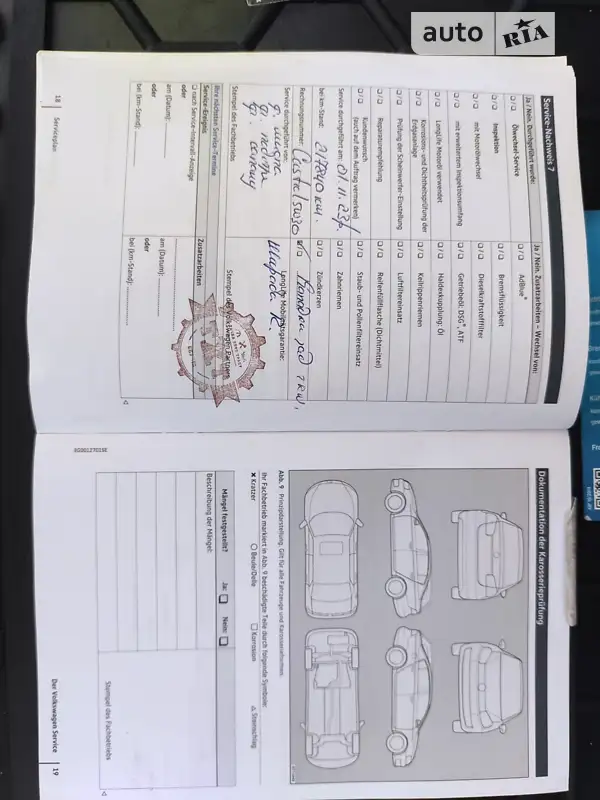 auto RIA
Service-Nachweis 7
Ja / Nein, Durchgeführt wurde:
Ölwechsel-Service
Inspektion
mit Motorölwechsel
mit erweitertem Inspektionsumfang
LongLife Motoröl verwendet
Korrosions- und Dichtheitsprüfung der Erdgasanlage
Prüfung der Scheinwerfer-Einstellung
Reparaturempfehlung
Kundenwunsch
(auch auf dem Auftrag vermerken)
Service durchgeführt am: 01.11.23р.
bei km-Stand: 217840 км.
Rechnungsnummer: Castrol 5W30
Service durchgeführt von:
ф. масла
ф. повітря
ф. салону
Stempel des Fachbetriebs
Ja / Nein, Zusatzarbeiten – Wechsel von:
AdBlue®
Bremsflüssigkeit
Dieselkraftstofffilter
Getriebeöl: DSG®, ATF
Haldexkupplung: Öl
Keilrippenriemen
Luftfiltereinsatz
Reifenfüllflasche (Dichtmittel)
Staub- und Pollenfiltereinsatz
Zahnriemen
Zündkerzen
LongLife Mobilitätsgarantie:
Stempel des Volkswagen Partners
Ihre nächsten Service-Termine
Service-Ereignis
nach Service-Intervall-Anzeige
oder
am (Datum):
oder
bei (km-Stand):
Zusatzarbeiten
am (Datum):
oder
bei (km-Stand):
18 Serviceplan
Dokumentation der Karosserieprüfung
Abb. 9 Prinzipdarstellung. Gilt für alle Fahrzeuge und Karosserieformen.
Ihr Fachbetrieb markiert in Abb. 9 beschädigte Teile durch folgende Symbole:
× Kratzer
○ Beule/Delle
□ Korrosion
△ Steinschlag
Mängel festgestellt?
Ja:
Nein:
Beschreibung der Mängel:
Stempel des Fachbetriebs
Der Volkswagen Service 19